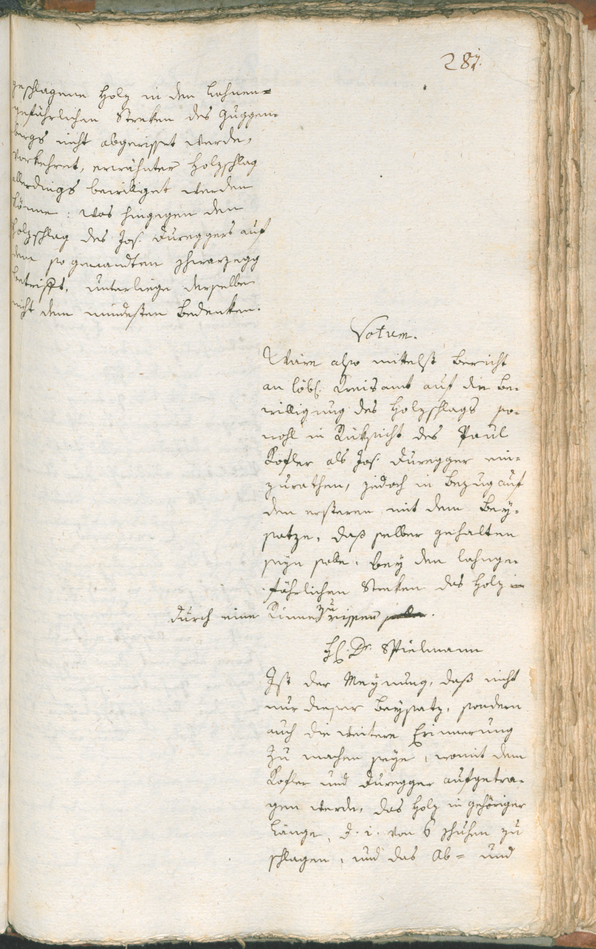 287.
geschlagene Holz in den Lahnen-
gefährlichen Streken des Guggen-
bergs nicht abgerisset werde,
verkehret, erwähnter Holzschlag
allerdings bewilliget werden
könne: was hingegen den
Holzschlag des Jos. Duregger auf
dem so genandten schwarzegg
betrifft, unterliege derselbe
nicht dem mindesten Bedenken.
Votum.
Wäre also mittelst Bericht
an löbl. Kreisamt auf die Be-
willigung des Holzschlags so-
wohl in Rüksicht des Paul
Kofler als Jos. Duregger ein-
zurathen, jedoch in Bezug auf
den ersteren mit dem Bey-
satze, daß selber gehalten
seyn solle, bey den lahnge-
fährlichen Streken das Holz
durch eine Rinne zu rissen.
H. Dr. Spielmann
Ist der Meynung, daß nicht
nur dieser Beysatz, sondern
auch die weitere Erinnerung
zu machen seye, womit dem
Kofler und Duregger aufgetra-
gen werde, das Holz in gehöriger
Länge, d. i. von 6 schuhen zu
schlagen, und das Ab- und